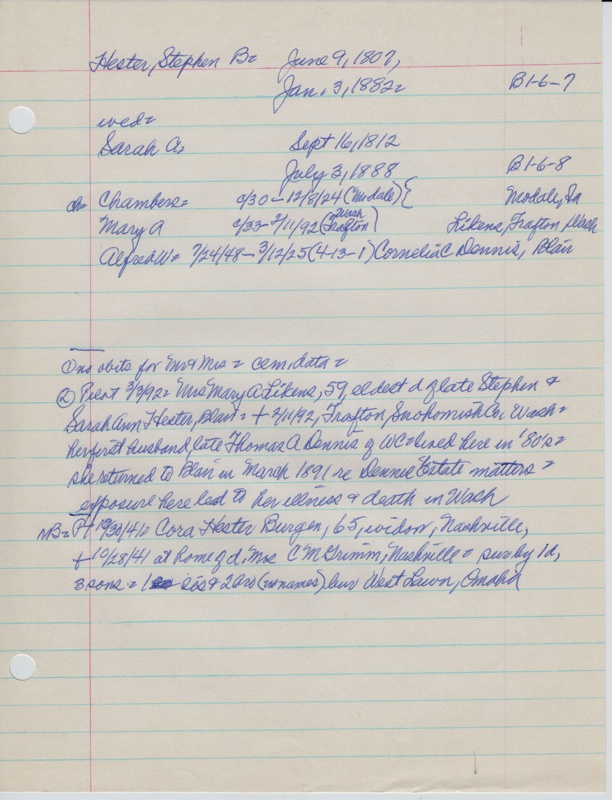 Hester, Stephen B= June 9, 1807,
Jan. 3, 1882= B1-6-7
wed=
Sarah A. Sept 16, 1812
July 3, 1888 B1-6-8
ch= Chambers= 0/30 - 12/8/24 (Modale) { Modale, Ia
Mary A 0/33 - 2/11/92 (Wash Trafton) Likens, Trafton, Wash
Alfred W= 7/24/48 - 3/12/25 (4-13-1) Cornelia C Dennis, Blair
① no obits for Mr & Mrs = cem. data =
② Pilot 3/3/92= Mrs Mary A Likens, 59, eldest d of late Stephen &
Sarah Ann Hester, Blair = + 2/11/92, Trafton, Snohomish Co, Wash=
her first husband, late Thomas A Dennis of WC = lived here in '80's=
she returned to Blair in March 1891 re Dennis Estate matters =
exposure here led to her illness & death in Wash
NB= PT 10/30/41= Cora Hester Burgen, 65, widow, Nashville,
+ 10/28/41 at home of d, Mrs C M Grimm, Nashville= surv by 1d,
3 sons = 1 sis & 2 bro (no names) bur West Lawn, Omaha